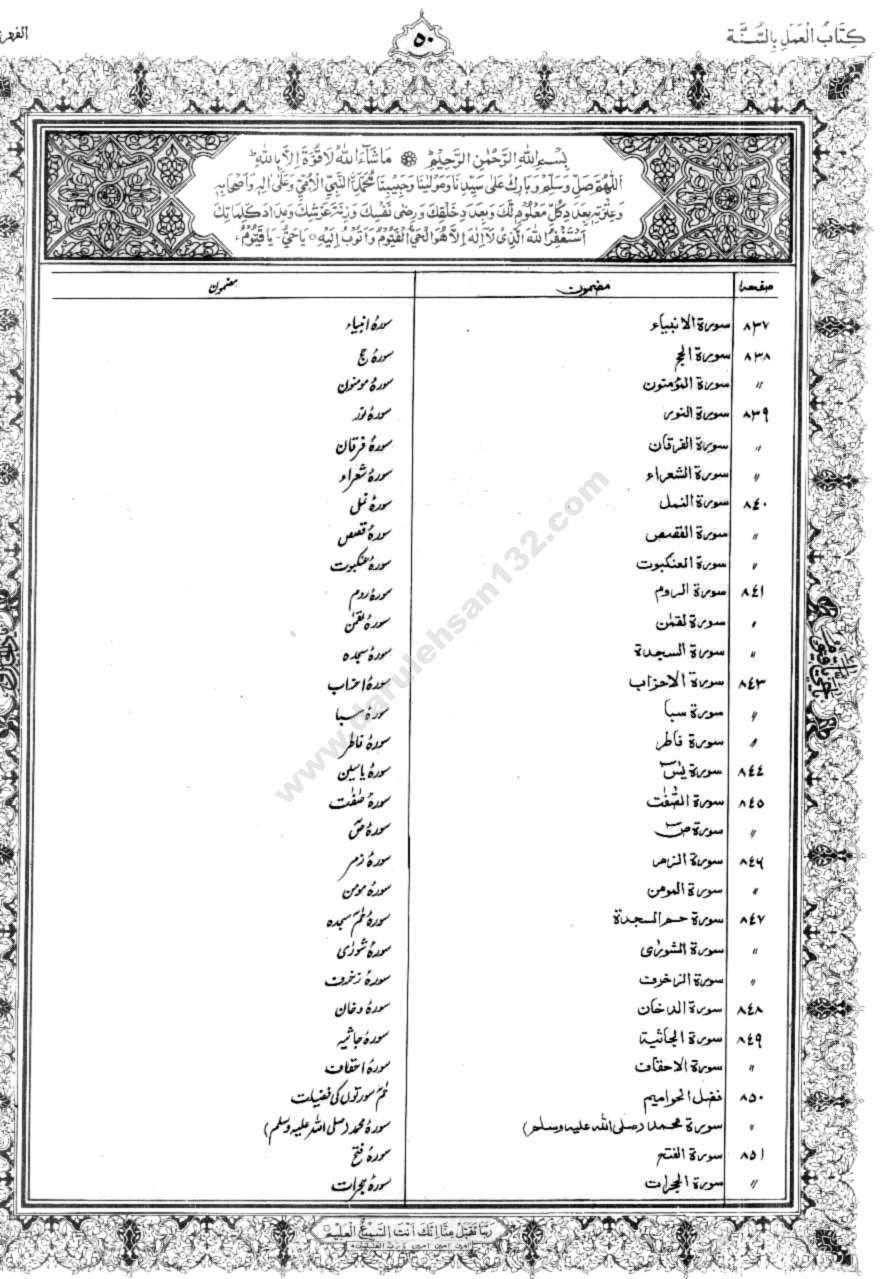 كِتَابُ الْعَمَلِ بِالسُّنَّة
٥٠
بِسْمِ اللهِ الرَّحْمٰنِ الرَّحِيْمِ مَا شَآءَ اللهُ لَا قُوَّةَ اِلَّا بِاللهِ
اَللّٰهُمَّ صَلِّ وَسَلِّمْ وَبَارِكْ عَلٰى سَيِّدِنَا وَمَوْلٰينَا وَحَبِيْبِنَا مُحَمَّدِ النَّبِيِّ الْاُمِّيِّ وَعَلٰى اٰلِهٖ وَاَصْحَابِهٖ
وَعِتْرَتِهٖ بِعَدَدِ كُلِّ مَعْلُوْمٍ لَّكَ وَبِعَدَدِ خَلْقِكَ وَرِضٰى نَفْسِكَ وَزِنَةَ عَرْشِكَ وَمِدَادَ كَلِمَاتِكَ
اَسْتَغْفِرُ اللهَ الَّذِىْ لَآ اِلٰهَ اِلَّا هُوَ الْحَىُّ الْقَيُّوْمُ وَاَتُوْبُ اِلَيْهِ ٥ يَا حَىُّ - يَا قَيُّوْمُ
صفحہ مضمون مضمون
٨٣٧ سورة الانبياء سورۂ انبیاء
٨٣٨ سورة الحج سورۂ حج
〃 سورة المؤمنون سورۂ مومنون
٨٣٩ سورة النور سورۂ نور
〃 سورة الفرقان سورۂ فرقان
〃 سورة الشعراء سورۂ شعراء
٨٤٠ سورة النمل سورۂ نمل
〃 سورة القصص سورۂ قصص
〃 سورة العنكبوت سورۂ عنکبوت
٨٤١ سورة الروم سورۂ روم
〃 سورة لقمٰن سورۂ لقمٰن
〃 سورة السجدة سورۂ سجدہ
٨٤٣ سورة الاحزاب سورۂ احزاب
〃 سورة سبا سورۂ سبا
〃 سورة فاطر سورۂ فاطر
٨٤٤ سورة يٰسٓ سورۂ یاسین
٨٤٥ سورة الصّٰفّٰت سورۂ صٰفّٰت
〃 سورة صٓ سورۂ صٓ
٨٤٦ سورة الزمر سورۂ زمر
〃 سورة المومن سورۂ مومن
٨٤٧ سورة حم السجدة سورۂ حٰمٓ سجدہ
〃 سورة الشورٰى سورۂ شورٰی
〃 سورة الزخرف سورۂ زخرف
٨٤٨ سورة الدخان سورۂ دخان
٨٤٩ سورة الجاثية سورۂ جاثیہ
〃 سورة الاحقاف سورۂ احقاف
٨٥٠ فضل الحواميم حٰمٓ سورتوں کی فضیلت
〃 سورة محمد (صلى الله عليه وسلم) سورۂ محمد (صلی اللہ علیہ وسلم)
٨٥١ سورة الفتح سورۂ فتح
〃 سورة الحجرات سورۂ حجرات
رَبَّنَا تَقَبَّلْ مِنَّا اِنَّكَ اَنْتَ السَّمِيْعُ الْعَلِيْمُ
www.darulehsan132.com